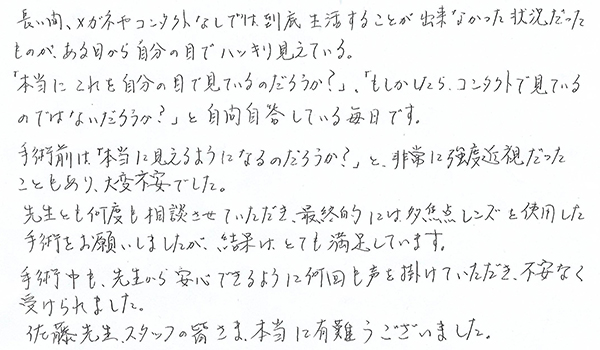 長い間、メガネやコンタクトなしでは到底生活することが出来なかった状況だった
ものが、ある日から自分の目でハッキリ見えている。
「本当にこれを自分の目で見ているのだろうか?」、「もしかしたら、コンタクトで見ている
のではないだろうか?」と自問自答している毎日です。
手術前は、「本当に見えるようになるのだろうか?」と、非常に強度近視だった
こともあり、大変不安でした。
先生とも何度も相談させていただき、最終的には多焦点レンズを使用した
手術をお願いしましたが、結果は、とても満足しています。
手術中も、先生から安心できるように何回も声を掛けていただき、不安なく
受けられました。
佐藤先生、スタッフの皆さま、本当に有難うございました。